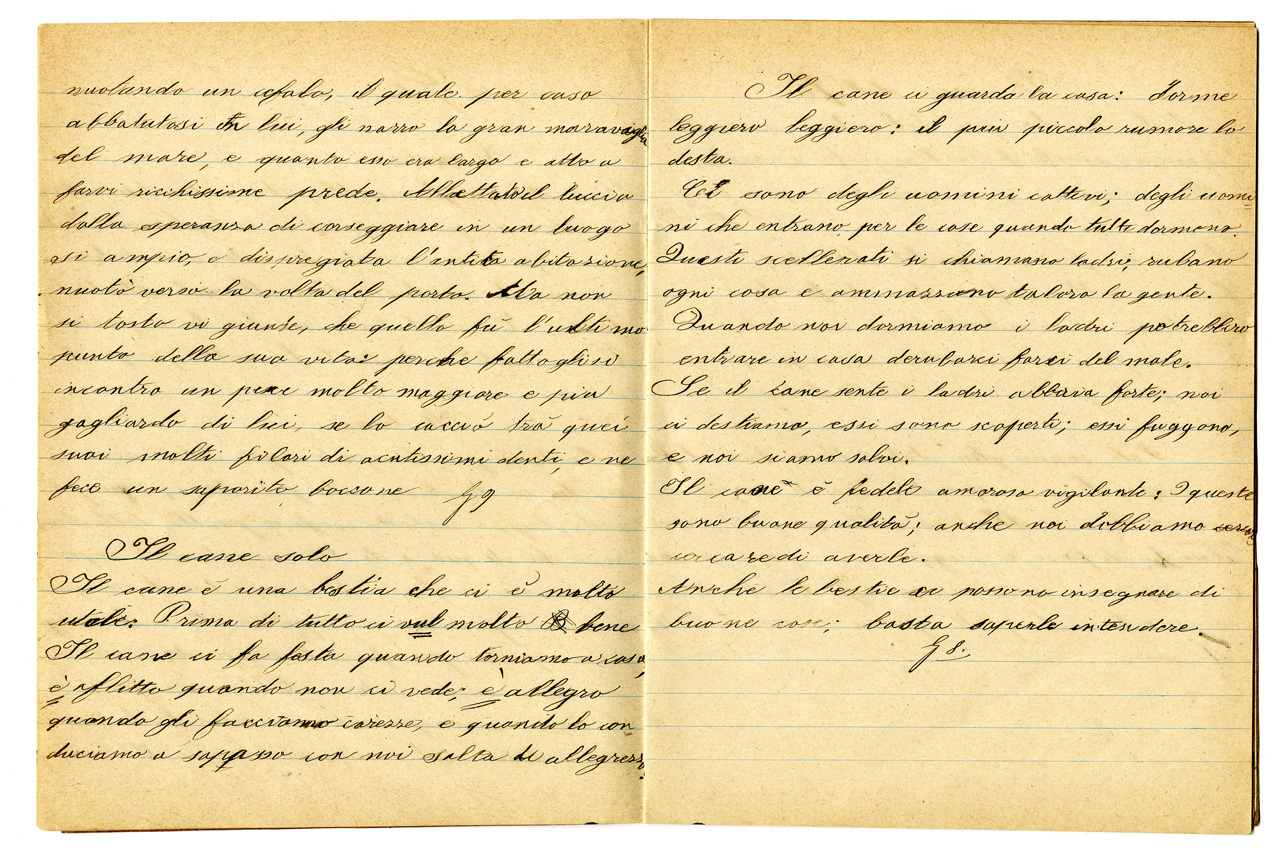 nuotando un cefalo, il quale per caso
abbatutosi in lui, gli narro la gran maraviglia
del mare, e quanto esso era largo e atto a
farvi ricchissime prede. Allettato il luccio
dalla speranza di corseggiare in un luogo
si ampio, e dispregiata l'antica abitazione,
nuotò verso la volta del porto. Ma non
si tosto vi giunse, che quello fù l'ultimo
punto della sua vita: perche fattoglisi
incontro un pesce molto maggiore e piu
gagliardo di lui, se lo cacciò trà quei
suoi molti filari di acutissimi denti, e ne
fece un saporito boccone
Il cane solo
Il cane è una bestia che ci è molto
utile. Prima di tutto ci vul molto bene
Il cane ci fa festa quando torniamo a casa,
è aflitto quando non ci vede; è allegro
quando gli facciamo carezze, e quando lo con
duciamo a sapasso con noi salta di allegrezza.
Il cane ci guarda la casa: Dorme
leggiero leggiero: il piu piccolo rumore lo
desta.
Ci sono degli uomini cattivi; degli uomi
ni che entrano per le case quando tutti dormono.
Questi scellerati si chiamano ladri, rubano
ogni cosa e ammazzano talora la gente.
Quando noi dormiamo i ladri potrebbiro
entrare in casa derubarci farci del male.
Se il cane sente i ladri abbaia forte; noi
ci destiamo, essi sono scoperti; essi fuggono,
e noi siamo salvi.
Il cane è fedele amoroso vigilante: queste
sono buone qualità; anche noi dobbiamo
cercare di averle.
Anche le bestie ci possono insegnare di
buone cose; basta saperle intendere.